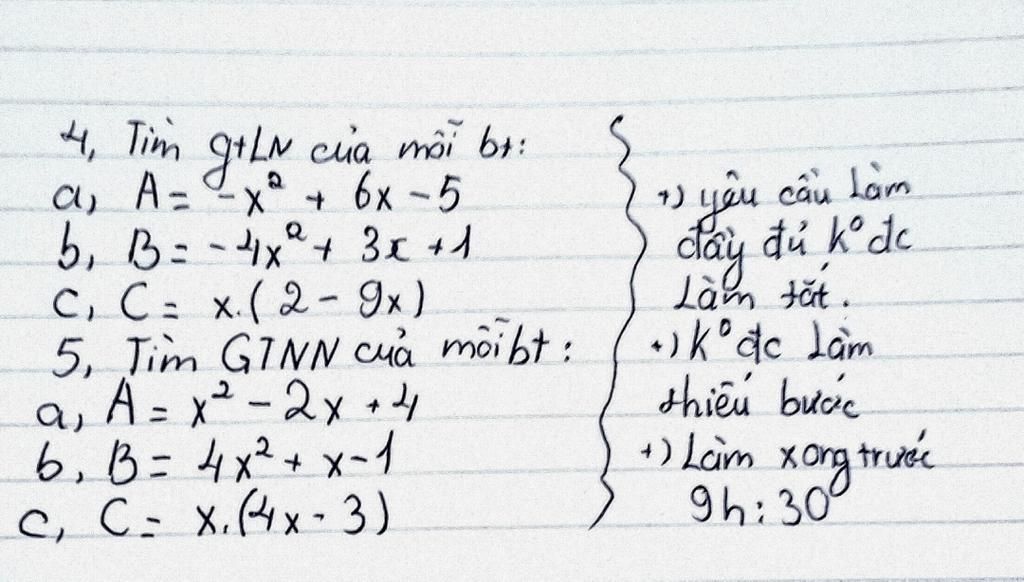 4, Tìm gtLN của mỗi bt:
a, A = -x² + 6x - 5
b, B = -4x² + 3x + 1
c, C = x.(2 - 9x)
5, Tìm GTNN của mỗi bt:
a, A = x² - 2x + 4
b, B = 4x² + x - 1
c, C = x.(4x - 3)
+) yêu cầu làm
đầy đủ k° đc
làm tắt.
+) k° đc làm
thiếu bước
+) Làm xong trước
9h:30